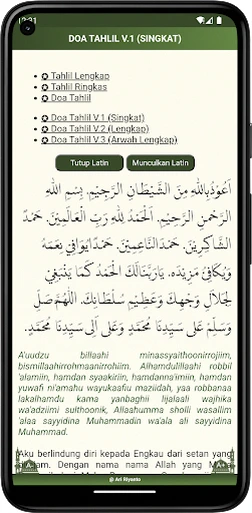 12:21
DOA TAHLIL V.1 (SINGKAT)
✪ Tahlil Lengkap
✪ Tahlil Ringkas
✪ Doa Tahlil
✪ Doa Tahlil V.1 (Singkat)
✪ Doa Tahlil V.2 (Lengkap)
✪ Doa Tahlil V.3 (Arwah Lengkap)
Tutup Latin
Munculkan Latin
اَعُوْذُ بِاللهِ مِنَ الشَّيْطَانِ الرَّجِيْمِ. بِسْمِ اللهِ
الرَّحْمٰنِ الرَّحِيْمِ. اَلْحَمْدُ لِلّٰهِ رَبِّ الْعَالَمِيْنَ. حَمْدَ
الشَّاكِرِيْنَ. حَمْدَ النَّاعِمِيْنَ. حَمْدًا يُوَافِيْ نِعَمَهُ
وَيُكَافِئُ مَزِيْدَهُ. يَارَبَّنَالَكَ الْحَمْدُ كَمَا يَنْبَغِيْ
لِجَلَالِ وَجْهِكَ وَعَظِيْمِ سُلْطَانِكَ. اَللّٰهُمَّ صَلِّ
وَسَلِّمْ عَلَى سَيِّدِنَا مُحَمَّدٍ وَعَلَى اٰلِ سَيِّدِنَا مُحَمَّدٍ.
A'uudzu billaahi minassyaithoonirrojiim,
bismillaahirrohmaanirrohiim. Alhamdulillaahi robbil
'alamiin, hamdan syaakiriin, hamdanna'imiin, hamdan
yuwafi ni'amahu wayukaafiu maziidah, yaa robbanaa
lakalhamdu kama yanbaghii lijalaali wajhika
wa'adziimi sulthoonik, Allaahumma sholli wasallim
'alaa sayyidina Muhammadin wa'ala ali sayyidina
Muhammad.
Aku berlindung diri kepada Engkau dari setan yang
Dengan nama nama Allah yang
@ Ari Riyanto